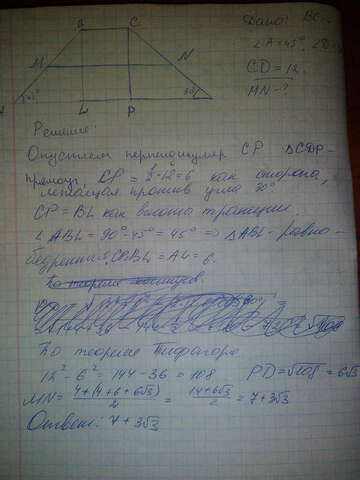 B C
Дано: BC
∠A=45°, ∠D
M N
CD=12
MN-?
45° 30°
L P
Решение:
Опустим перпендикуляр CP △CDP-
прямоуг. CP = ½·12=6 как сторона,
лежащая против угла 30°
CP=BL как высота трапеции.
∠ABL = 90°-45°=45° ⇒ △ABL-равно-
бедренный. BL=AL=6.
По теореме Пифагора
12²-6²=144-36=108 PD=√108=6√3
MN= 4+(4+6+6√3)/2 = 14+6√3/2 = 7+3√3
Ответ: 7+3√3